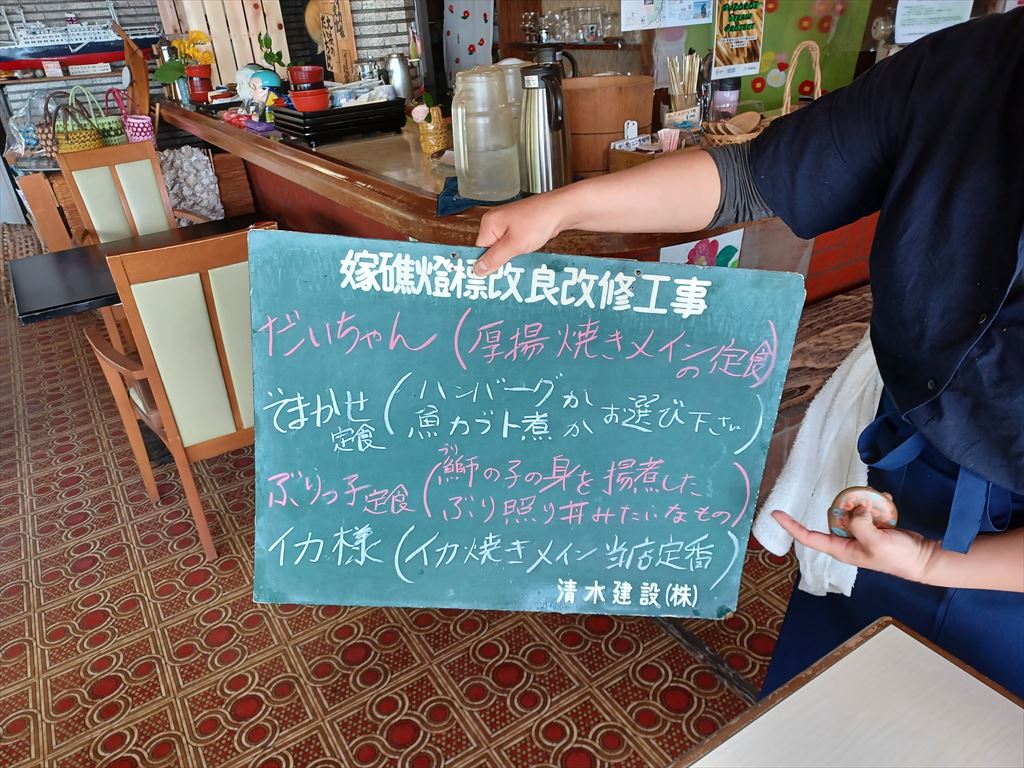 嫁礁燈標改良改修工事
だいちゃん(厚揚焼きメインの定食)
おまかせ定食(ハンバーグか魚カブト煮かお選び下さい)
ぶりっ子定食(鰤の子の身を揚煮したぶり照り丼みたいなもの)
ブリ
イカ様(イカ焼きメイン当店定番)
清水建設(株)